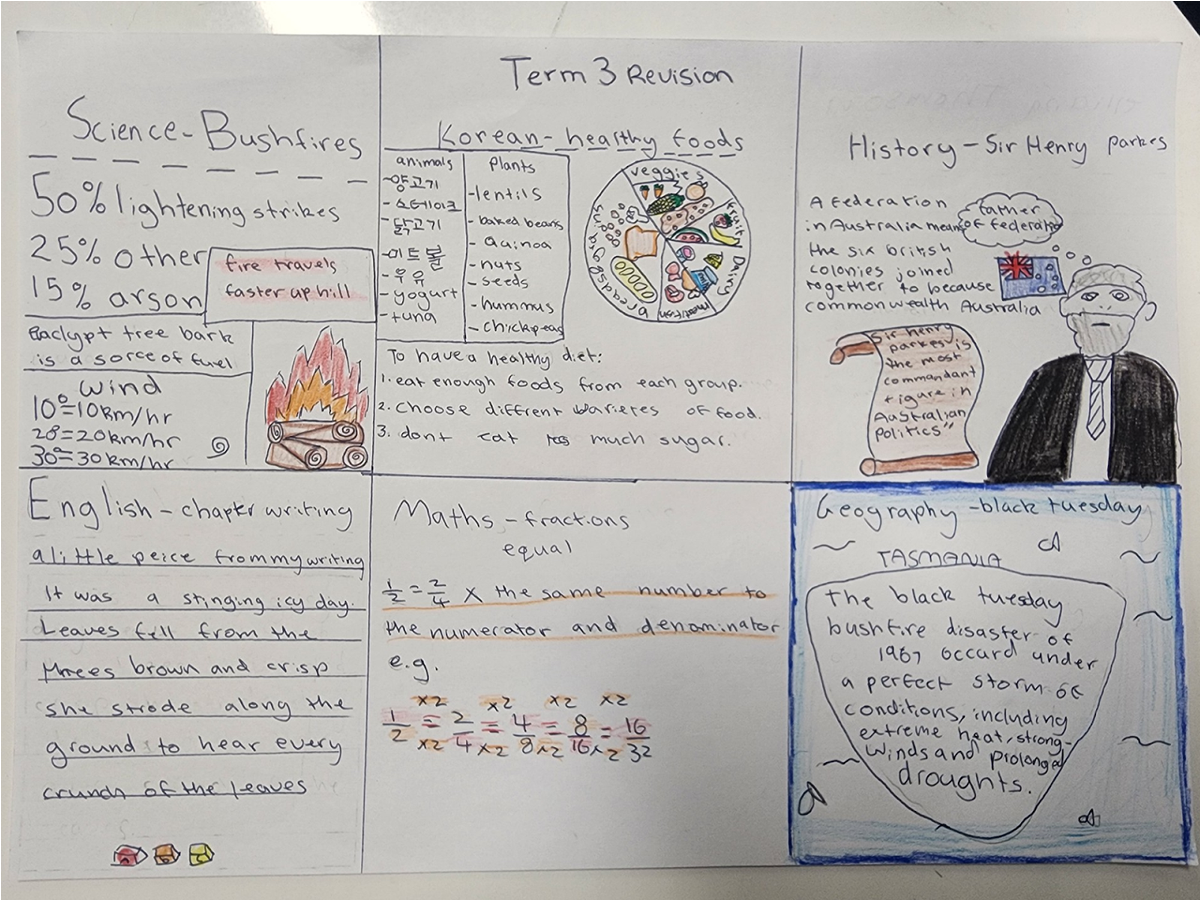 Term 3 Revision
Science - Bushfires
50% lightening strikes
25% other
15% arson
fire travels
faster up hill
Eaclypt tree bark
is a sorce of fuel
Wind
10°=10km/hr
20°=20km/hr
30°=30km/hr
Korean - healthy foods
animals
-양고기
-스테이크
-닭고기
-미트볼
-우유
-yogurt
-tuna
Plants
-lentils
-baked beans
-Quinoa
-nuts
-seeds
-hummus
-chickpeas
veggies
fruit
Dairy
meat/fish
breads
sugar
To have a healthy diet:
1. eat enough foods from each group.
2. choose diffrent varietes of food.
3. dont eat much sugar.
History - Sir Henry parkes
A Federation
in Australia means
the six british
colonies joined
together to because
commonwealth Australia
father
of federation
Sir henry
parkes is
the most
commandant
figure in
Australian
politics"
English - chapter writing
a little peice from my writing
It was a stinging icy day.
Leaves fell from the
trees brown and crisp
she strode along the
ground to hear every
crunch of the leaves
Maths - fractions
equal
1/2 = 2/4 x the same number to
the numerator and denaminator
e.g.
x2 x2 x2 x2
1/2 = 2/4 = 4/8 = 8/16 = 16/32
x2 x2 x2 x2
Geography - black tuesday
TASMANIA
The black tuesday
bushfire disaster of
1967 occard under
a perfect storm of
conditions, including
extreme heat, strong-
winds and prolonged
droughts.